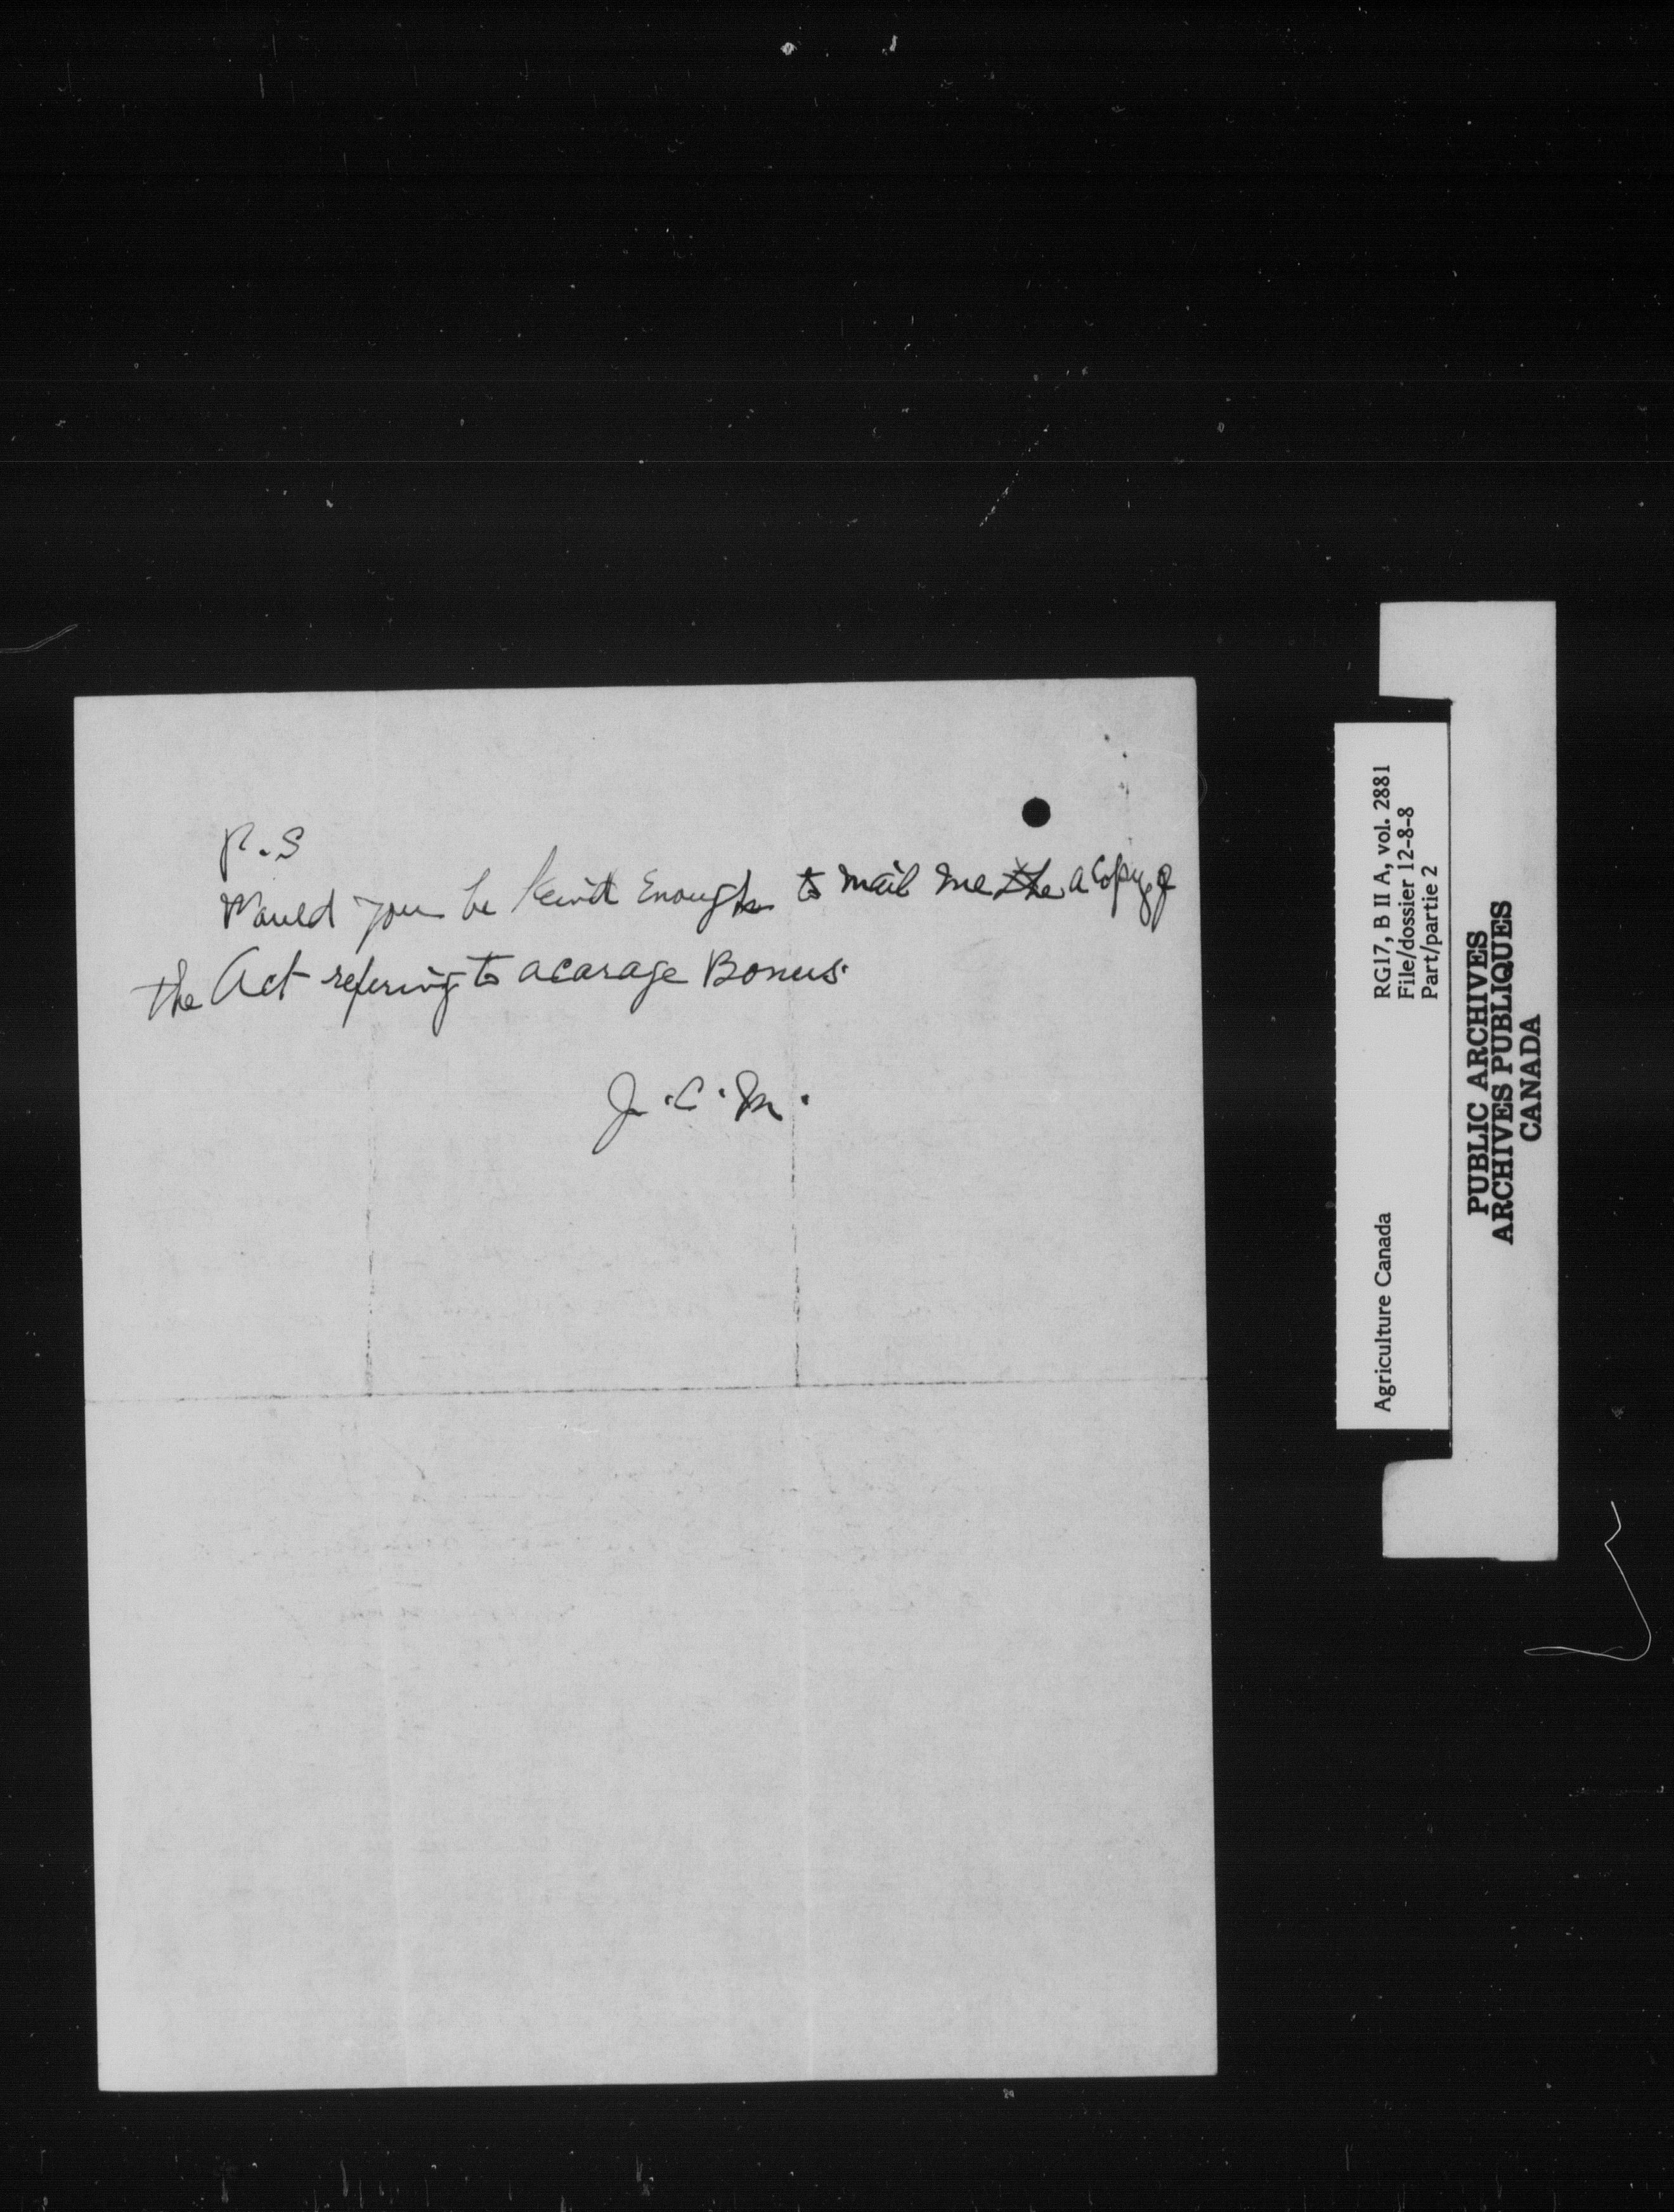 P.S
Would you be kind enough to mail me the a Copy of
the Act refering to acarage Bonus.
J.C.M.
RG17, B II A, vol. 2881
File/dossier 12-8-8
Part/partie 2
Agriculture Canada
PUBLIC ARCHIVES
ARCHIVES PUBLIQUES
CANADA